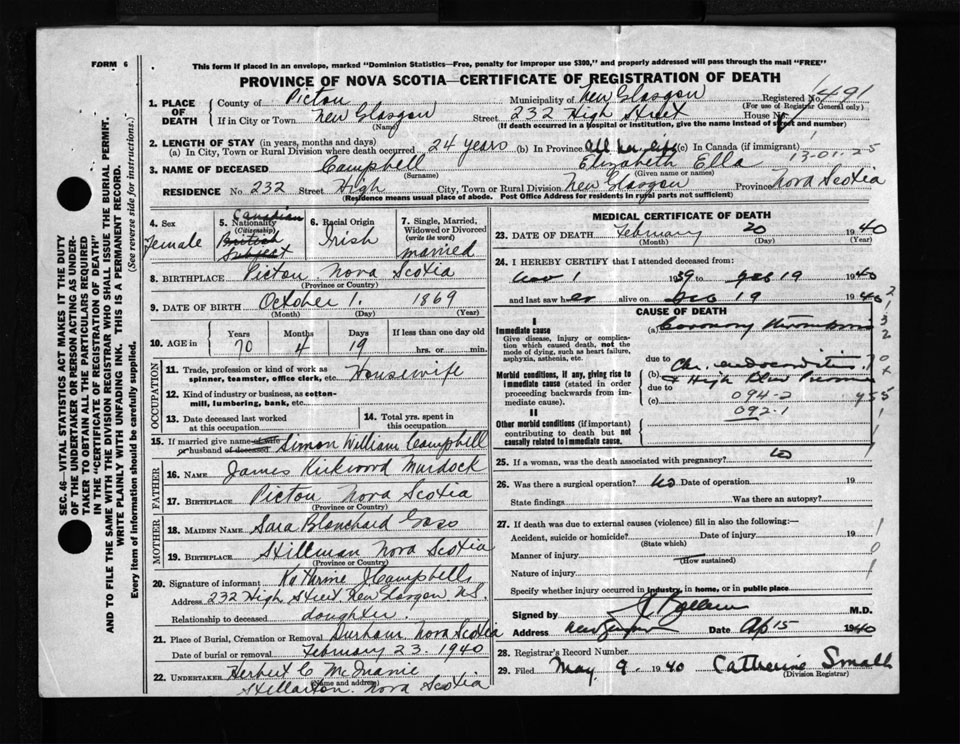 FORM 6
This form if placed in an envelope, marked "Dominion Statistics—Free, penalty for improper use $300," and properly addressed will pass through the mail "FREE"
PROVINCE OF NOVA SCOTIA—CERTIFICATE OF REGISTRATION OF DEATH
1. PLACE OF DEATH County of Pictou Municipality of New Glasgow Registered No. 491
(For use of Registrar General only)
If in City or Town New Glasgow Street 232 High Street House No.
(Name) (If death occurred in a hospital or institution, give the name instead of street and number)
2. LENGTH OF STAY (in years, months and days)
(a) In City, Town or Rural Division where death occurred 24 years (b) In Province All her life (c) In Canada (if immigrant)
13-01-25
3. NAME OF DECEASED Campbell Elizabeth Ella
(Surname) (Given name or names)
RESIDENCE No. 232 Street High City, Town or Rural Division New Glasgow Province Nova Scotia
(Residence means usual place of abode. Post Office Address for residents in rural parts not sufficient)
4. Sex Female
5. Nationality (Citizenship) Canadian British Subject
6. Racial Origin Irish
7. Single, Married, Widowed or Divorced (write the word) married
8. BIRTHPLACE Pictou Nova Scotia
(Province or Country)
9. DATE OF BIRTH October 1. 1869
(Month) (Day) (Year)
10. AGE in Years 70 Months 4 Days 19 If less than one day old hrs. or min.
OCCUPATION
11. Trade, profession or kind of work as spinner, teamster, office clerk, etc. Housewife
12. Kind of industry or business, as cotton-mill, lumbering, bank, etc.
13. Date deceased last worked at this occupation
14. Total yrs. spent in this occupation
15. If married give name of wife or husband of deceased Simon William Campbell
FATHER
16. NAME James Kirkwood Murdock
17. BIRTHPLACE Pictou Nova Scotia
(Province or Country)
MOTHER
18. MAIDEN NAME Sara Blanchard
19. BIRTHPLACE Nova Scotia
(Province or Country)
20. Signature of informant Katherine J Campbell
Address 232 High Street New Glasgow N.S.
Relationship to deceased daughter.
21. Place of Burial, Cremation or Removal Durham, Nova Scotia
Date of burial or removal February 23. 1940
22. UNDERTAKER Herbert C
(Name and address)
Stellarton. Nova Scotia
MEDICAL CERTIFICATE OF DEATH
23. DATE OF DEATH February 20 1940
(Month) (Day) (Year)
24. I HEREBY CERTIFY that I attended deceased from:
Nov 1 1939 to Feb 19 1940
and last saw her alive on Feb 19 1940
CAUSE OF DEATH
I
Immediate cause
Give disease, injury or complication which caused death, not the mode of dying, such as heart failure, asphyxia, asthenia, etc.
(a) Coronary thrombosis
due to
Morbid conditions, if any, giving rise to immediate cause (stated in order proceeding backwards from immediate cause).
(b) Chr. endocarditis
& High Blood Pressure
due to
(c) 094-2
092.1
II
Other morbid conditions (if important) contributing to death but not causally related to immediate cause.
25. If a woman, was the death associated with pregnancy? no
26. Was there a surgical operation? no Date of operation 19
State findings Was there an autopsy?
27. If death was due to external causes (violence) fill in also the following:—
Accident, suicide or homicide? Date of injury 19
(State which)
Manner of injury
(How sustained)
Nature of injury
Specify whether injury occurred in industry, in home, or in public place
Signed by M.D.
Address New Glasgow Date Ap 15 1940
28. Registrar's Record Number
29. Filed May 9 1940 Catherine Small
(Division Registrar)
SEC. 46—VITAL STATISTICS ACT MAKES IT THE DUTY
OF THE UNDERTAKER OR PERSON ACTING AS UNDER-
TAKER TO OBTAIN ALL THE PARTICULARS REQUIRED
IN THE "CERTIFICATE OF REGISTRATION OF DEATH"
AND TO FILE THE SAME WITH THE DIVISION REGISTRAR WHO SHALL ISSUE THE BURIAL PERMIT.
WRITE PLAINLY WITH UNFADING INK. THIS IS A PERMANENT RECORD.
Every item of information should be carefully supplied. (See reverse side for instructions.)